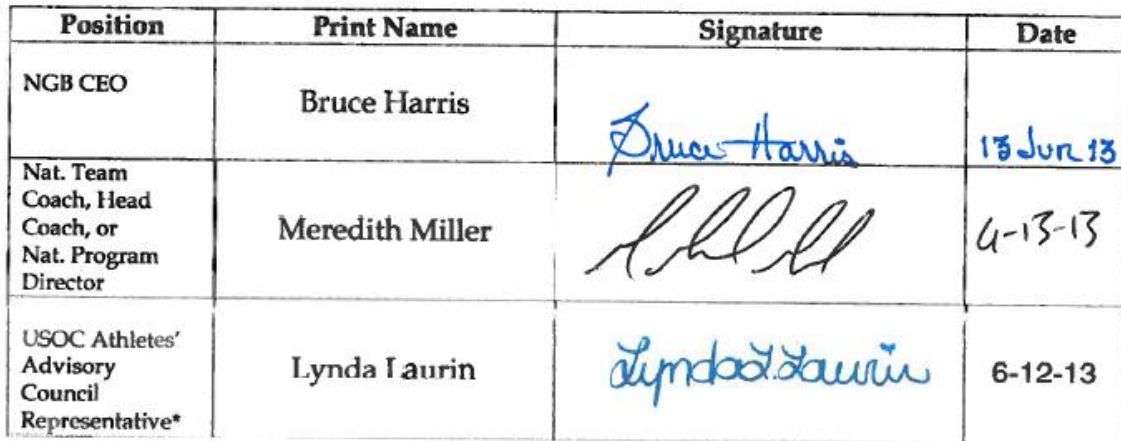 Position Print Name Signature Date
NGB CEO
Bruce Harris
Bruce Harris
13 Jun 13
Nat. Team
Coach, Head
Coach, or
Nat. Program
Director
Meredith Miller
6-13-13
USOC Athletes'
Advisory
Council
Representative*
Lynda Laurin
Lynda L. Laurin
6-12-13